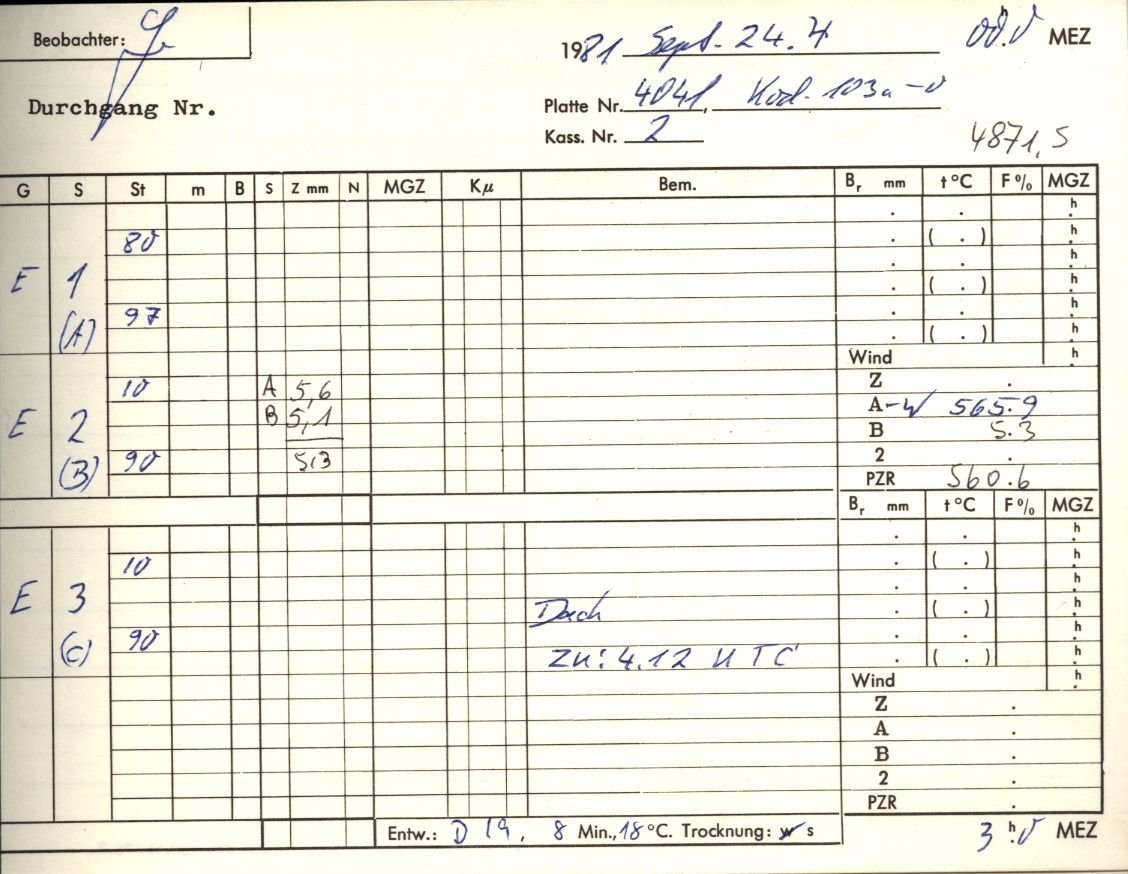 Beobachter:
1981 Sept. 24.4 00h.0 MEZ
Durchgang Nr.
Platte Nr. 4041, Kod. 103a-0
Kass. Nr. 2
4871,5
G S St m B S Z mm N MGZ Kμ Bem. Br mm t°C F% MGZ
. . h.
80 . ( . ) h.
. . h.
E 1 . ( . ) h.
97 . . h.
(A) . ( . ) h.
Wind h.
10 A 5,6 Z .
B 5,1 A-W 565.9
E 2 B 5.3
90 5,3 2 .
(B) PZR 560.6
Br mm t°C F% MGZ
. . h.
10 . ( . ) h.
. . h.
E 3 Dach . ( . ) h.
90 . . h.
(C) zu: 4.12 UTC . ( . ) h.
Wind h.
Z .
A .
B .
2 .
PZR .
Entw.: D 19, 8 Min., 18°C. Trocknung: w s
3h.0 MEZ